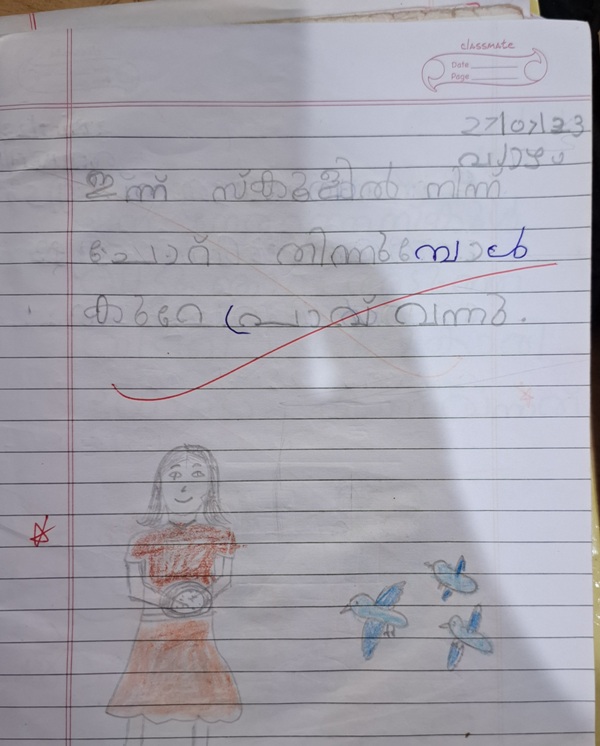 classmate
Date
Page
27/07/23
വ്യാഴം
ഇന്ന് സ്കൂളിൽ നിന്ന്
ചോറ് തിന്നുമ്പോൾ
കുറേ പ്രാവ് വന്നു.